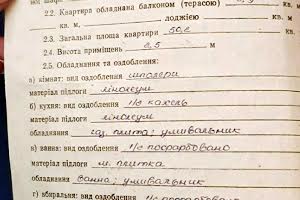 2.2. Квартира обладнана балконом (терасою)
кв. м, лоджією кв. м.
2.3. Загальна площа квартири 50,2 кв. м
2.4. Висота приміщень 2,5 м
2.5. Обладнання та оздоблення:
а) кімнат: вид оздоблення шпалери
матеріал підлоги лінолеум
б) кухня: вид оздоблення п/є кахель
матеріал підлоги лінолеум
обладнання газ. плита; умивальник
в) ванна: вид оздоблення п/є пофарбовано
матеріал підлоги м. плитка
обладнання ванна; умивальник
г) вбиральня: вид оздоблення п/є пофарбовано